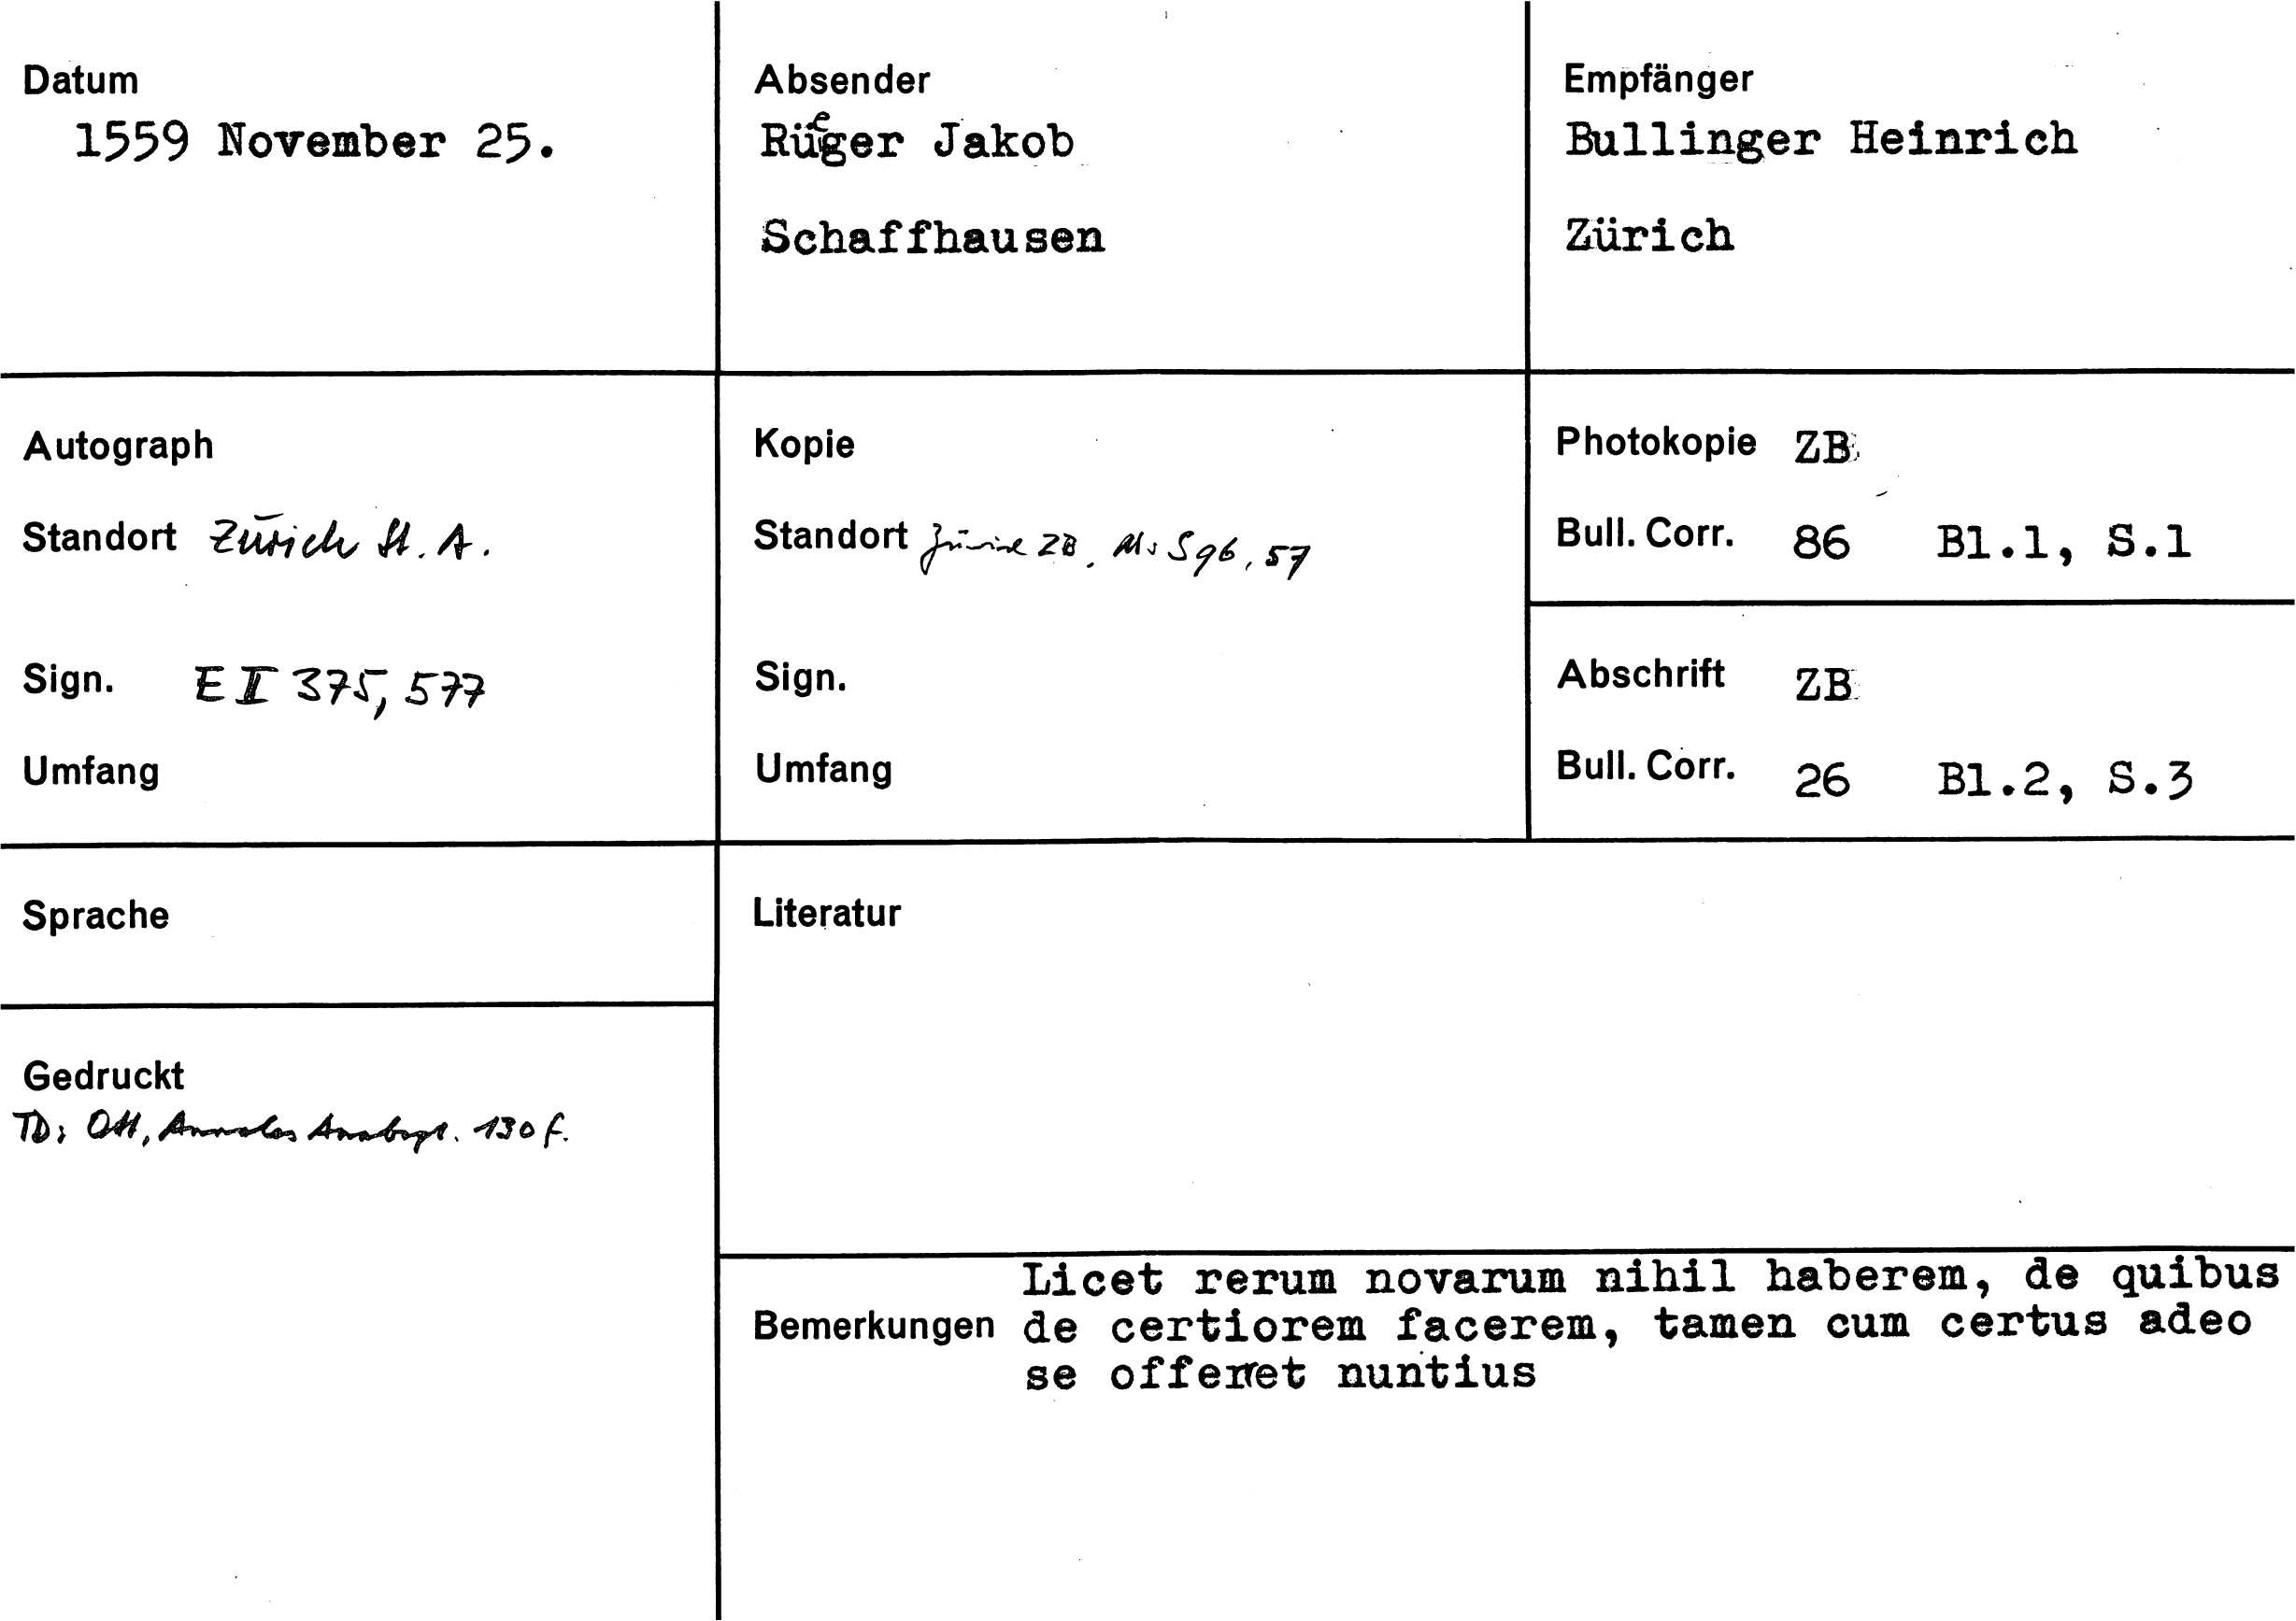 Datum
1559 November 25.
Absender
Rüeger Jakob
Schaffhausen
Empfänger
Bullinger Heinrich
Zürich
Autograph
Standort Zürich St. A.
Sign. E II 375, 577
Umfang
Kopie
Standort Zürich ZB, Ms S 96, 57
Sign.
Umfang
Photokopie ZB
Bull. Corr. 86 Bl.1, S.1
Abschrift ZB
Bull. Corr. 26 Bl.2, S.3
Sprache
Gedruckt
TD: Ott, Annales Anabapt. 130 f.
Literatur
Bemerkungen
Licet rerum novarum nihil haberem, de quibus
de certiorem facerem, tamen cum certus adeo
se offerret nuntius